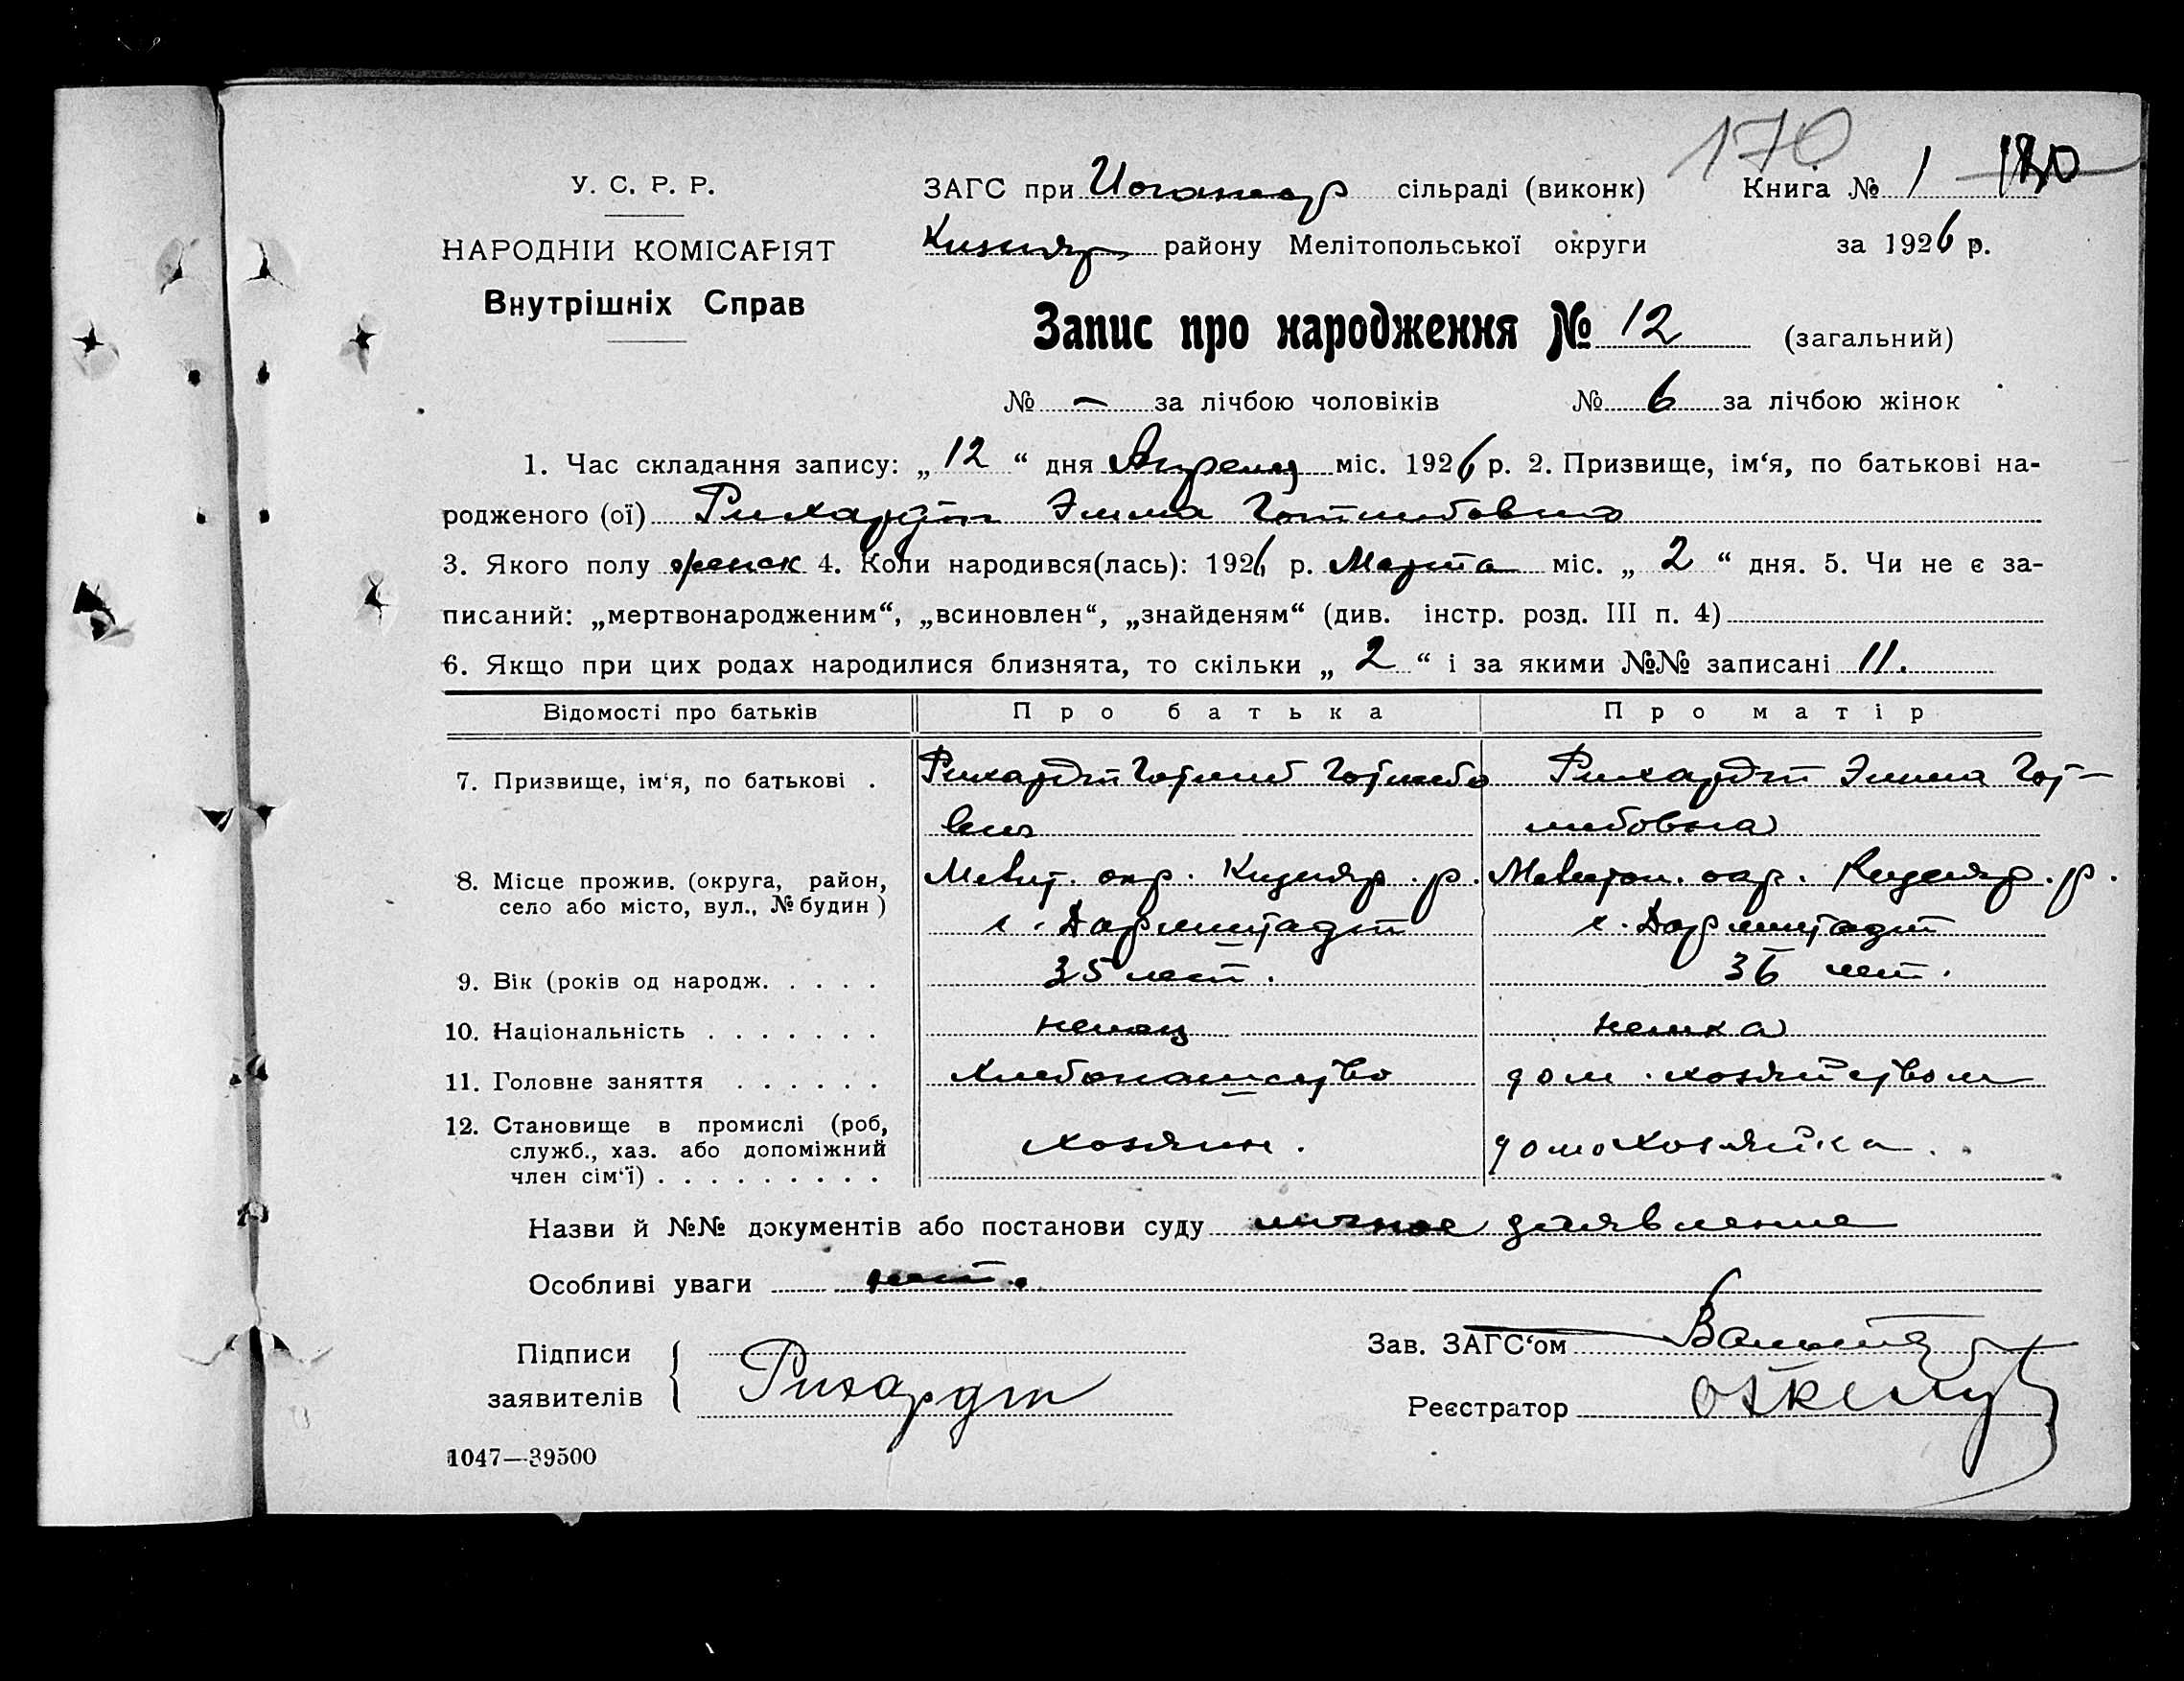 170
У. С. Р. Р.
ЗАГС при сільраді (виконк) Книга № 1
НАРОДНІЙ КОМІСАРІЯТ
району Мелітопольської округи за 1926 р.
Внутрішніх Справ
Запис про народження № 12 (загальний)
№ — за лічбою чоловіків № 6 за лічбою жінок
1. Час складання запису: „ 12 “ дня Апреля міс. 1926 р. 2. Призвище, ім‘я, по батькові на-
родженого (ої) Рихардт Эмма Готлибовна
3. Якого полу женск 4. Коли народився(лась): 1926 р. Марта міс. „ 2 “ дня. 5. Чи не є за-
писаний: „мертвонародженим“, „всиновлен“, „знайденям“ (див. інстр. розд. III п. 4)
6. Якщо при цих родах народилися близнята, то скільки „ 2 “ і за якими №№ записані 11.
Відомості про батьків Про батька Про матір
7. Призвище, ім‘я, по батькові . Рихардт Готлиб Готлибо Рихардт Эмма Гот-
вич либовна
8. Місце прожив. (округа, район, Мелит. окр. Кизияр. р. Мелитоп. окр. Кизияр. р.
село або місто, вул., № будин ) с. Дармштадт с. Дармштадт
9. Вік (років од народж. . . . . 35 лет. 36 лет.
10. Національність . . . . . . . немец немка
11. Головне заняття . . . . . . хлебопашество дом. хозяйством
12. Становище в промислі (роб, хозяин. домохозяйка.
служб., хаз. або допоміжний
член сім‘ї) . . . . . . . . .
Назви й №№ документів або постанови суду личное заявление
Особливі уваги нет.
Підписи
Зав. ЗАГС‘ом
заявителів Рихардт
Реєстратор
1047—39500